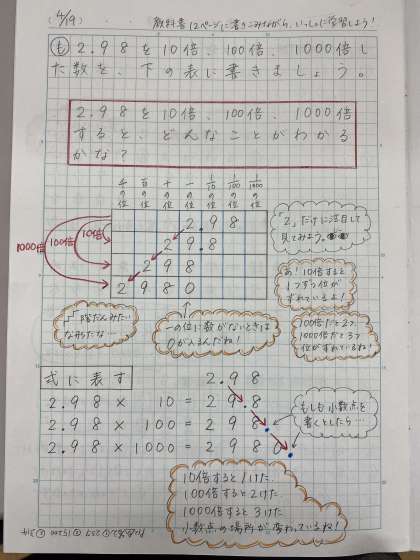 4/19 教科書12ページに書きこみながら、いっしょに学習しよう！
も 2.98を10倍、100倍、1000倍し
た数を、下の表に書きましょう。
2.98を10倍、100倍、1000倍
すると、どんなことがわかる
かな？
千の位 百の位 十の位 一の位 1/10の位 1/100の位 1/1000の位
2.98
29.8
298
2980
10倍
100倍
1000倍
「2」だけに注目して
見てみよう。
あ！10倍すると
1つずつ位が
ずれているよ！
100倍だと2つ
1000倍だと3つ
位がずれているね！
階だんみたい
な形だな…
一の位に数がないときは
0が入るんだね！
式に表す
2.98
2.98 × 10 = 29.8
2.98 × 100 = 298.
2.98 × 1000 = 2980.
もしも小数点を
書くとしたら…
10倍すると1けた
100倍すると2けた
1000倍すると3けた
小数点の場所が変わっているね！